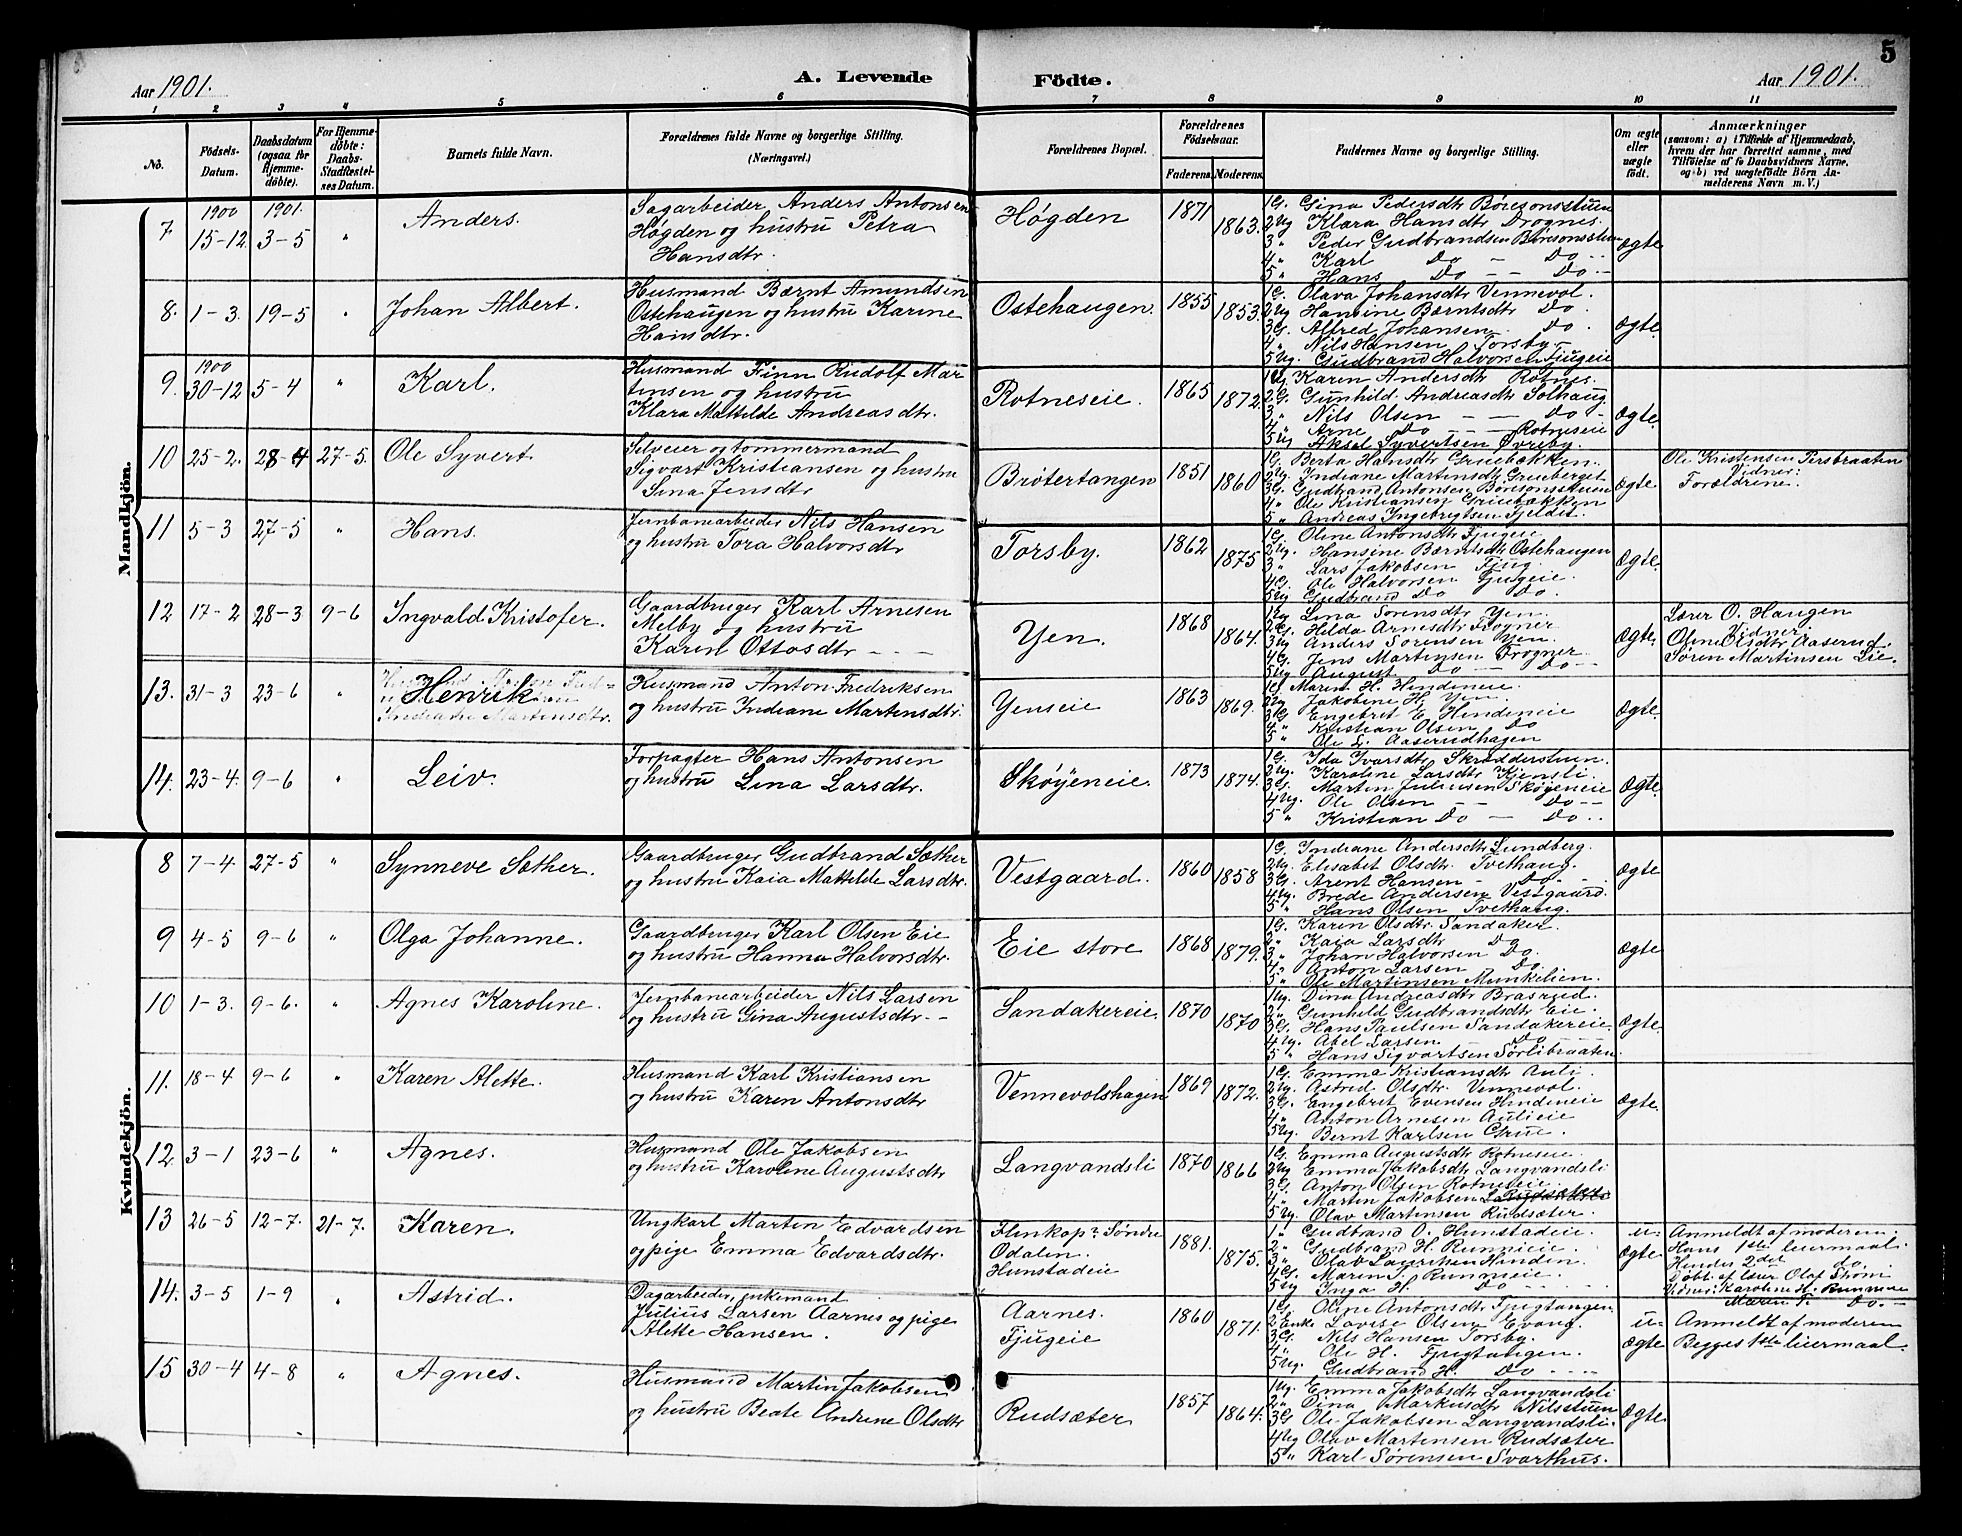 5
Aar 1901. A. Levende Födte. Aar 1901.
1 2 3 4 5 6 7 8 9 10 11
No.
Födsels-Datum.
Daabsdatum (ogsaa for Hjemme-döbte).
For Hjemme-döbte: Daabs-Stadfæstel-ses Datum.
Barnets fulde Navn.
Forældrenes fulde Navne og borgerlige Stilling. (Næringsvei.)
Forældrenes Bopæl.
Forældrenes Födselsaar.
Faderens. Moderens.
Faddernes Navne og borgerlige Stilling.
Om ægte eller uægte födt.
Anmærkninger
(saasom: a) i Tilfælde af Hjemmedaab,
hvem der har forrettet samme, med
Tilföielse af to Daabsvidners Navne,
og b) ved uægtefödte Börn An-
melderens Navn m. V.)
Mandkjön.
7. 1900 15-12 1901. 3-5 " Anders.
Sagarbeider Anders Antonsen
Høgden og hustru Petra
Hansdtr.
Høgden 1871 1863.
1G. Gina Pedersdtr Børesonsstuen
2Ug Klara Hansdtr Drognes.
3 " Peder Gudbrandsen Børesonsstuen
4 " Karl Do - Do --
5 " Hans Do -- Do --
Ægte
8. 1-3. 19-5 " Johan Albert.
Husmand Bernt Amundsen
Ostehaugen og hustru Karine
Hansdtr.
Ostehaugen. 1855 1853.
1G. Olava Johansdtr Vennevol.
2Ug Hansine Berntsdtr Do.
3G. Alfred Johansen Do.
4 " Nils Hansen Torsby -
5Ug. Gudbrand Halvorsen Fjugeie
Ægte
9. 1900 30-12 5-4 " Karl.
Husmand Finn Rudolf Mar-
tinsen og hustru
Klara Mathilde Andreasdtr.
Rotneseie. 1865 1872.
1Ug. Karen Andersdtr Rotnes.
2G. Gunhild Andreasdtr Solhaug
3 " Nils Olsen -- Do -
4 " Arne Do -- Rotneseie
5Ug Aksel Syvertsen Øvreby.
Ægte.
10 25-2. 28-4 27-5. Ole Syvert.
Selveier og tommermand
Sigvart Kristiansen og hustru
Lina Jensdtr
Brøtertangen 1851 1860
1G. Berta Hansdtr Gruebækken.
2Ug. Indiane Martinsdtr Grueberget
3G. Gudbrand Antonsen Børesonsstuen
4 " Ole Kristiansen Gruebækken
5 " Andreas Ingebrigtsen Fjeldet.
Ægte.
Ole Kristensen Persbraaten
Vidner:
Forældrene.
11 5-3 27-5 " Hans.
Jernbanearbeider Nils Hansen
og hustru Tora Halvorsdtr
Torsby. 1862 1875
1G. Oline Antonsdtr Fjugeie
2Ug. Hansine Berntsdtr Ostehaugen
3 " Lars Jakobsen Fjug.
4G. Ole Halvorsen Fjugeie.
5Ug Gudbrand Do Do.
Ægte.
12 17-2 28-3 9-6 Ingvald Kristofer.
Gaardbruger Karl Arnesen
Melby og hustru
Karen Ottosdtr - - -
Yen. 1868 1864.
1Ug Lina Sørensdtr Yen.
2G. Helda Arnesdtr Frogner
3Ug Anders Sørensen Yen.
4G. Jens Martinsen Frogner
5Ug August Do -- Do --
Ægte.
Lærer O. Haugen
Vidner
Oline Olsdtr Aaserud
Søren Martinsen Lie.
13. 31-3 23-6 " Henrik
Husmand Anton Fredriksen
og hustru Indiane Martinsdtr.
Yenseie 1863 1869.
1G. Maren H. Hindeneie.
2Ug Jakobine H. Yen.
3G Engebret E. Hindeneie
4 " Kristian Olsen Do
5 " Ole L. Aaserudhagen
Ægte.
14. 23-4. 9-6 " Leiv.
Forpagter Hans Antonsen
og hustru Lina Larsdtr.
Skøyeneie. 1873 1874.
1G. Ida Ivarsdtr Skrædderstuen.
2Ug. Karoline Larsdtr Kjensli
3G. Martin Juliussen Skøyeneie
4Ug. Ole Olsen -- Do --
5 " Kristian Do -- Do ..
Ægte.
Kvindekjön.
8 7-4. 27-5 " Synneve Sæther.
Gaardbruger Gudbrand Sæther
og hustru Kaia Mathilde Larsdtr.
Vestgaard. 1860 1858
1G. Indiane Andersdtr Lundberg.
2Ug. Elisabet Olsdtr. Tvethaug.
3G. Arent Hansen - Do. -
4Ug. Brede Andersen Vestgaard.
5 " Hans Olsen Tvethaug.
Ægte
9 4-5 9-6 " Olga Johanne.
Gaardbruger Karl Olsen Eie
og hustru Hanna Halvorsdtr.
Eie store 1868 1879.
1G. Karen Olsdtr. Sandaker.
2 " Kaia Larsdtr Do
3 " Johan Halvorsen Do.
4 " Anton Larsen Do.
5 " Ole Martinsen Munkelien.
Ægte
10 1-3. 9-6. " Agnes Karoline.
Jernbanearbeider Nils Larsen
og hustru Gina Augustsdtr. -
Sandakereie. 1870 1870
1Ug. Dina Andreasdtr Brasrud.
2 " Gunhild Gudbrandsdtr Eie.
3G. Hans Paulsen Sandakereie
4Ug. Abel Larsen. Do
5 " Hans Sigvartsen Sørlibraaten.
Ægte.
11. 18-4 9-6 " Karen Alette.
Husmand Karl Kristiansen
og hustru Karen Antonsdtr
Vennevolshagen 1869 1872.
1G. Emma Kristiansdtr Auli.
2Ug. Astrid Olsdtr. Vennevol.
3G. Engebret Evensen Hindeneie
4 " Anton Arnesen Aulieie
5Ug. Bernt Karlsen Grue.
Ægte.
12 3-1 23-6 " Agnes.
Husmand Ole Jakobsen
og hustru Karoline Augustsdtr
Langvandsli 1870 1866
1G. Emma Augustsdtr Rotneseie.
2Ug Emma Jakobsdtr Langvandsli
3G Anton Olsen Rotneseie.
4 " Martin Jakobsen Rudsæter
5Ug. Olav Martinsen Rudsæter.
Ægte.
13 26-5 12-7. 21-7. Karen.
Ungkarl Martin Edvardsen
og pige Emma Edvardsdtr.
Søndre
Odalen.
Hunstadeie
1881. 1875.
1 " Gudbrand O. Hunstadeie.
2 " Gudbrand H. Runnieie.
3 " Olav Lauritsen Hinden.
4G. Maren T. Runneie.
5Ug Inga H. Do
u-
Ægte
Anmeldt af moderen.
Hans 1ste leiermaal.
Hendes 2det do.
Døbt af lærer Olaf Strøm
Vidner: Karoline H. Runneie
Maren T. Do. -
14. 3-5 1-9 " Astrid.
Dagarbeider, enkemand
Julius Larsen Aarnes og pige
Alette Hansen.
Aarnes.
Fjugeie
1860 1871.
1G. Oline Antonsdtr Fjugtangen
2 Enke Lovise Olsen Evang.
3G. Nils Hansen Torsby.
4 " Ole H. Fjugtangen.
5Ug. Gudbrand H. Do
u-
Ægte
Anmeldt af moderen
Begges 1ste leiermaal.
15 30-4 4-8 " Agnes.
Husmand Martin Jakobsen
og hustru Beate Andrine Olsdtr
Rudsæter 1857 1864.
1Ug. Emma Jakobsdtr Langvandsli
2 " Dina Markusdtr Nilsstuen
3G Ole Jakobsen Langvandsli.
4Ug Olav Martinsen Rudsæter
5 " Karl Sørensen Svarthus.
Ægte.